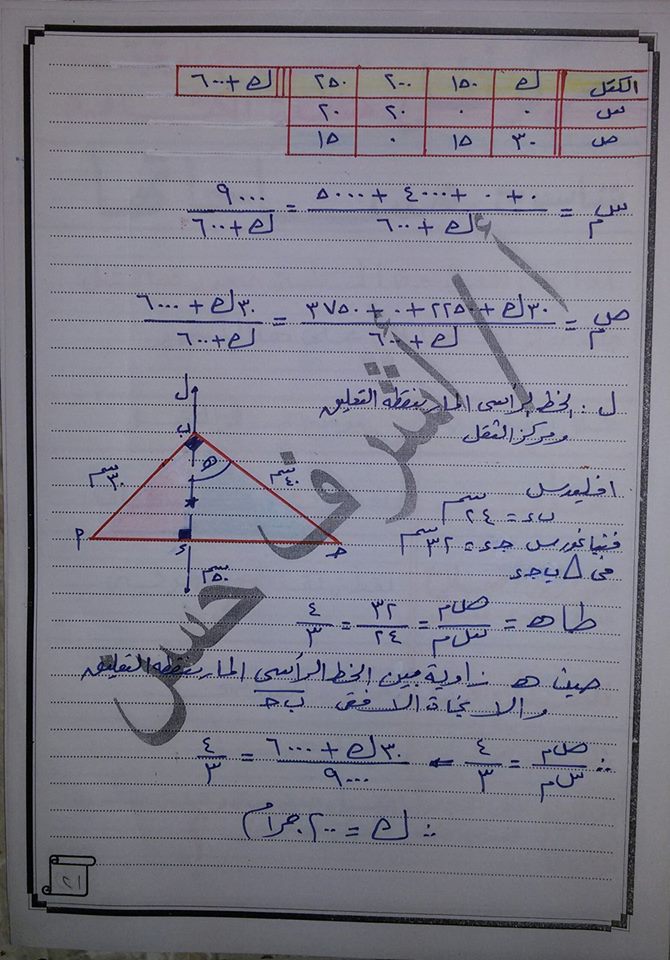 الكتل ك ١٥٠ ٢٠٠ ٢٥٠ ك+٦٠٠
س ٠ ٠ ٢٠ ٢٠
ص ٣٠ ١٥ ٠ ١٥
سم = ٠ + ٠ + ٤٠٠٠ + ٥٠٠٠ / ك + ٦٠٠ = ٩٠٠٠ / ك+٦٠٠
صم = ٣٠ك + ٢٢٥٠ + ٠ + ٣٧٥٠ / ك + ٦٠٠ = ٣٠ك + ٦٠٠٠ / ك+٦٠٠
ل : الخط الرأسى المار بنقطه التعليق
ومركز الثقل
ل
ب
ه
٣٠سم
٤٠سم
م
ء
ح
٥٠سم
اقليدس
بء = ٢٤ سم
فيثاغورس جـء = ٣٢ سم
فى △ ب جـ ء
طا ه = صم / سم = ٣٢ / ٢٤ = ٤ / ٣
حيث ه زاوية بين الخط الرأسى المار بنقطه التعليق
والاتجاة الافقى ب ح
∴ صم / سم = ٤ / ٣ ← ٣٠ك + ٦٠٠٠ / ٩٠٠٠ = ٤ / ٣
∴ ك = ٢٠٠ جرام
أ / أشرف حسن